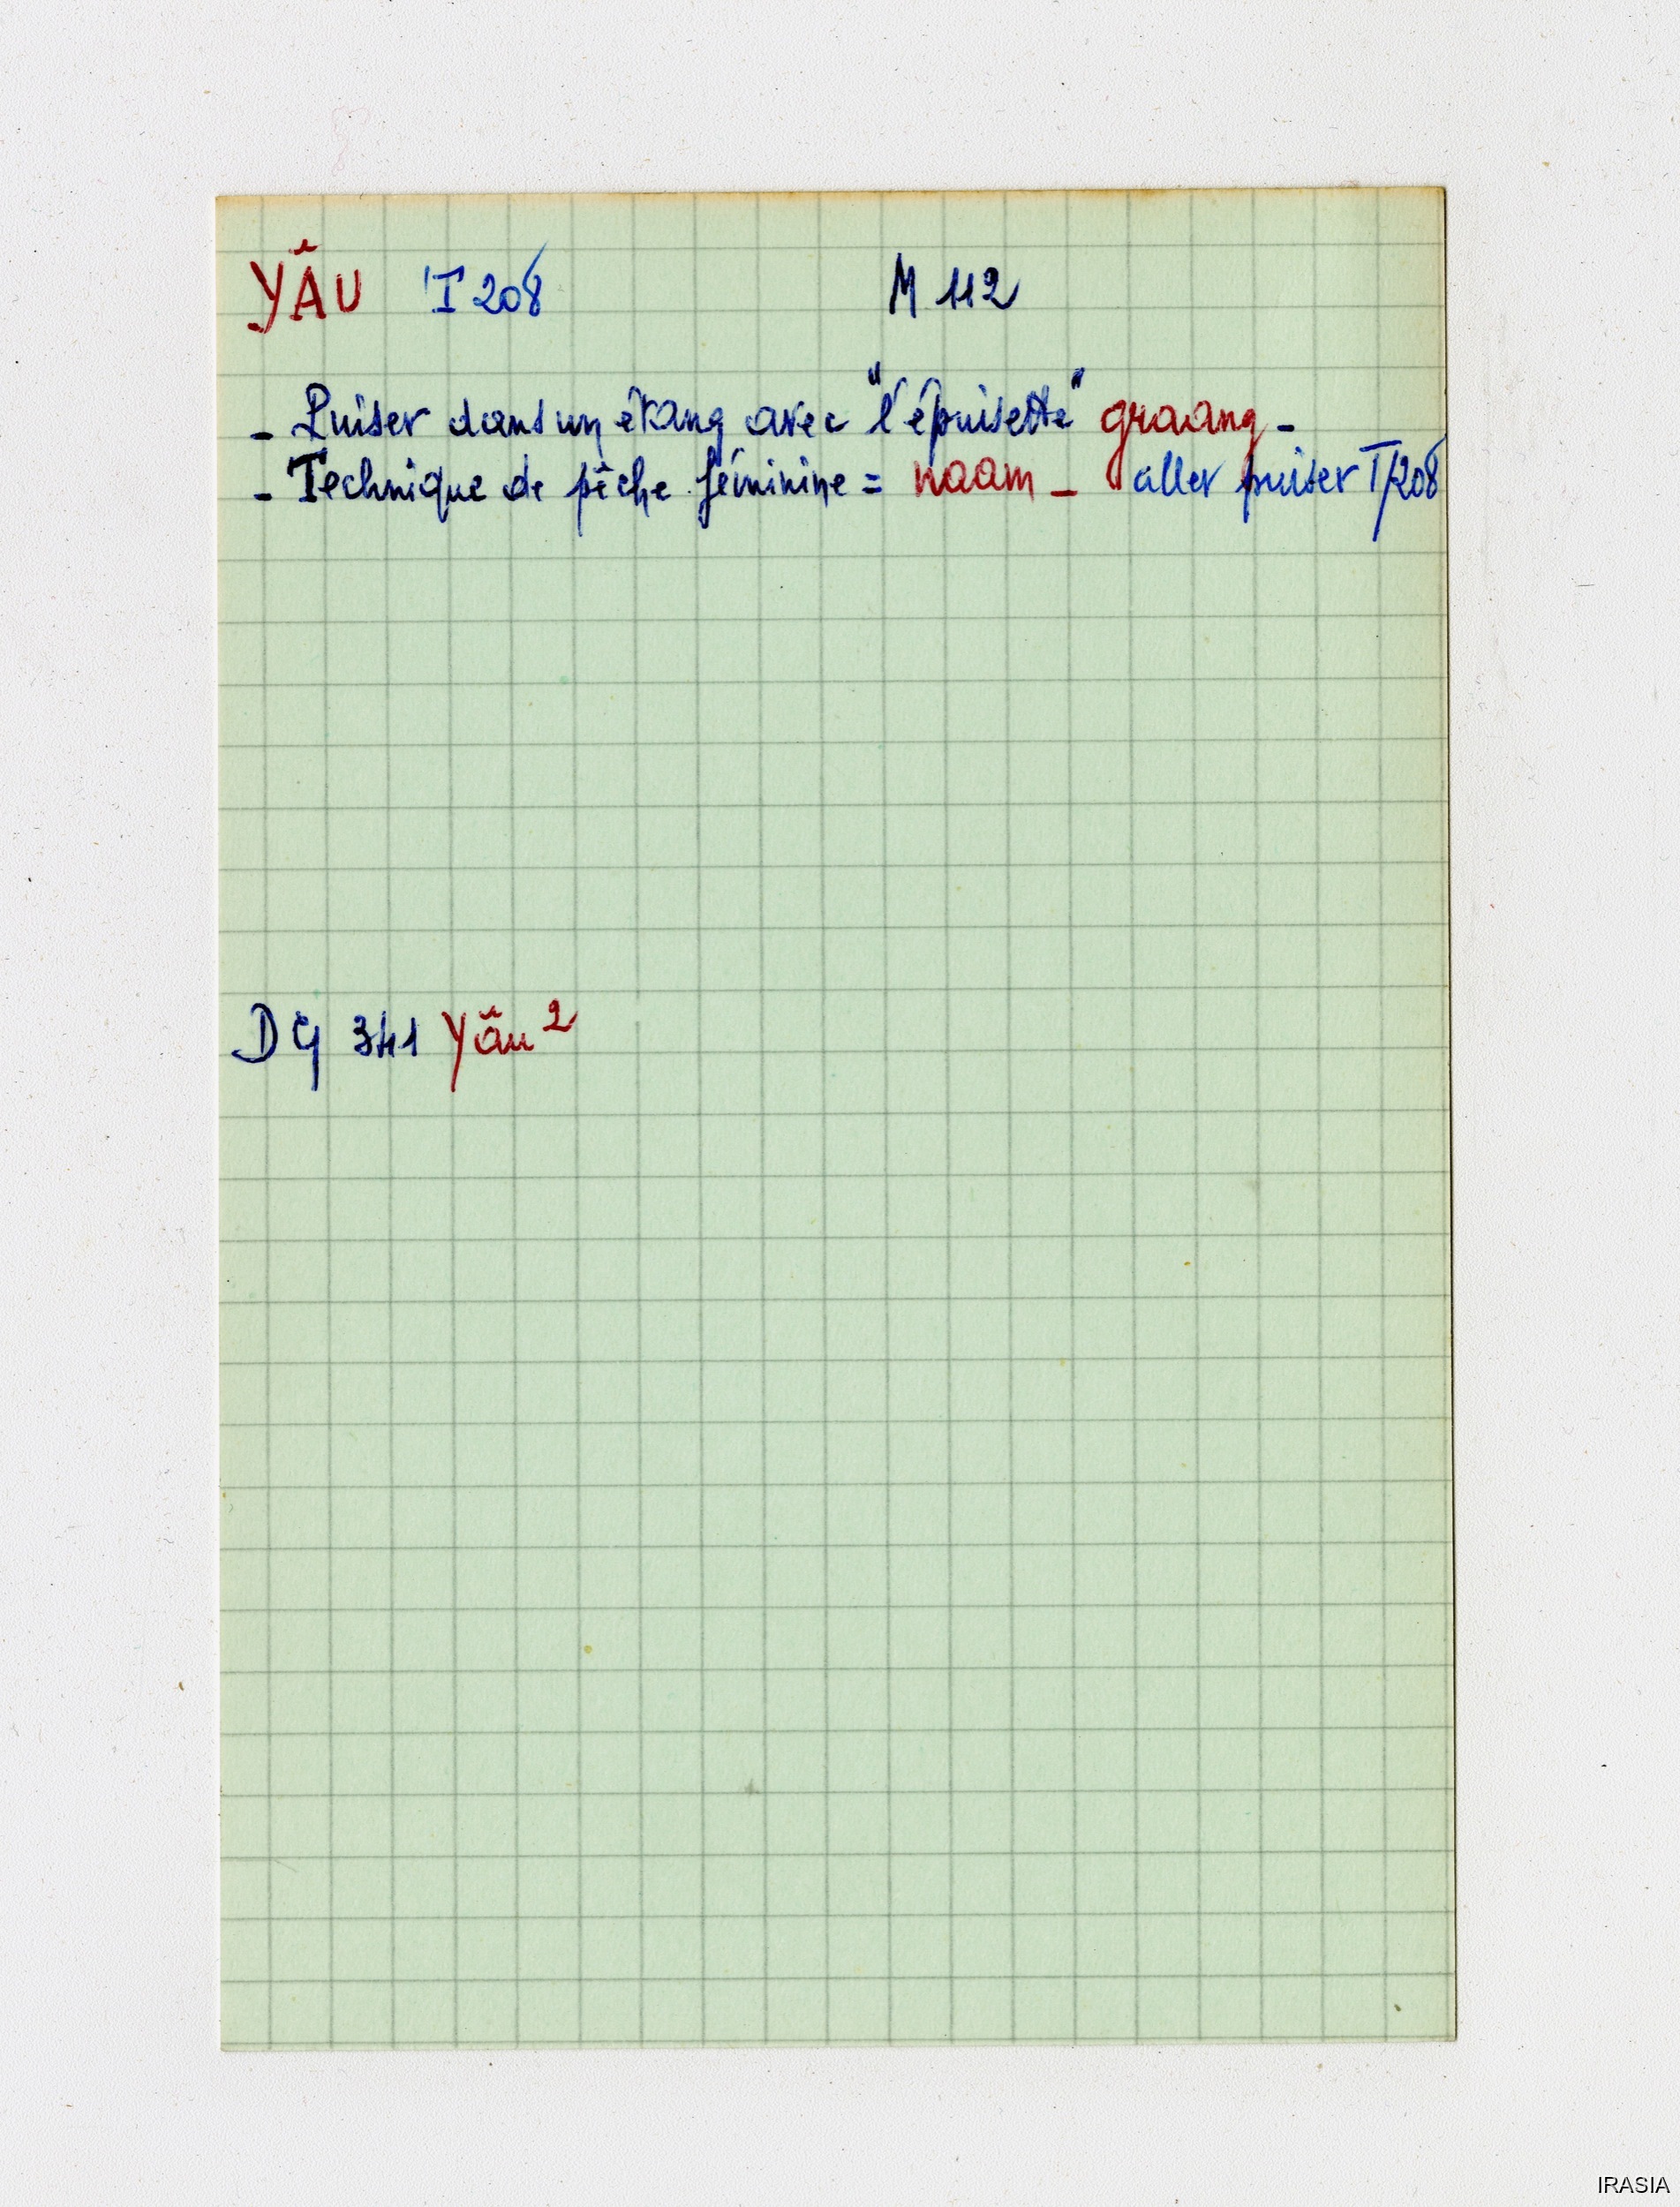 YÂU T 208 M 112
- Puiser dans un étang avec "l'épuisette" graang -
- Technique de pêche féminine = naam - aller puiser T/208
DG 341 Yâu ²
IRASIA